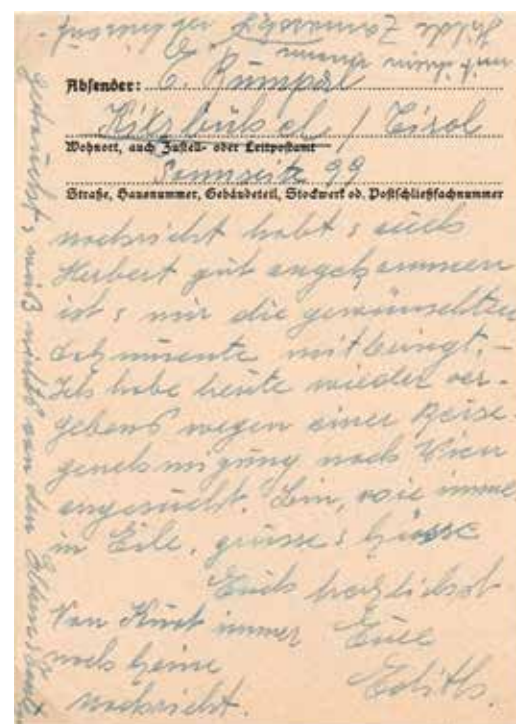 Absender: E. Rümpal
Kitzbühel / Tirol
Wohnort, auch Zustell- oder Leitpostamt
Sonnseite 99
Straße, Hausnummer, Gebäudeteil, Stockwerk od. Postschließfachnummer
nachricht habt & auch
Herbert gut angekommen
ist & mir die gewünschten
Dokumente mitbringt. –
Ich habe heute wieder ver-
gebens wegen einer Reise-
genehmigung nach Wien
angesucht. Bin, wie immer
in Eile, grüsse & küsse
Euch herzlichst
Von Kurt immer Eure
noch keine Edith.
nachricht.
weiß nichts von den Eltern &
Hilde
mit ihrem